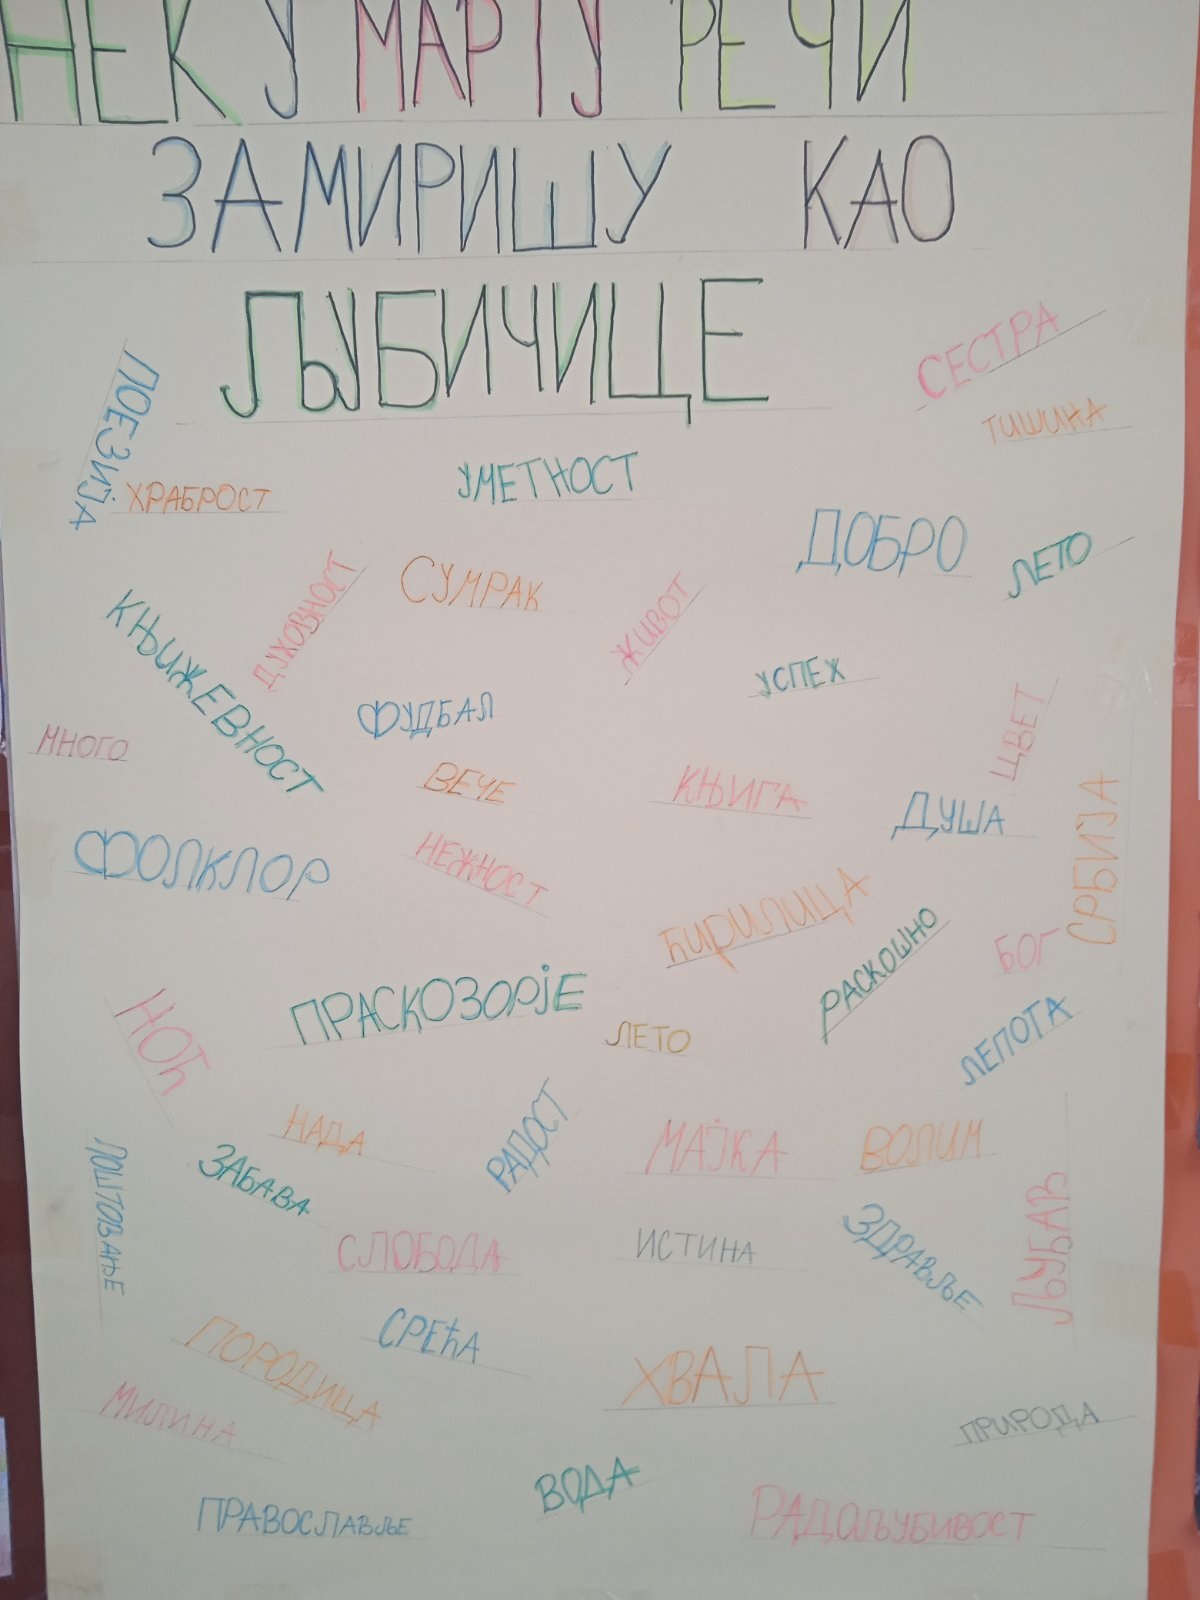 НЕК У МАРТУ РЕЧИ
ЗАМИРИШУ КАО
ЉУБИЧИЦЕ
СЕСТРА
ПОЕЗИЈА
ТИШИНА
ХРАБРОСТ
УМЕТНОСТ
ДОБРО
ЛЕТО
ДУХОВНОСТ
СУМРАК
ЖИВОТ
КЊИЖЕВНОСТ
УСПЕХ
ФУДБАЛ
ЦВЕТ
МНОГО
ВЕЧЕ
КЊИГА
ДУША
СРБИЈА
ФОЛКЛОР
НЕЖНОСТ
ЋИРИЛИЦА
РАСКОШНО
БОГ
ПРАСКОЗОРЈЕ
НОЋ
ЛЕТО
ЛЕПОТА
НАДА
РАДОСТ
МАЈКА
ВОЛИМ
ПОШТОВАЊЕ
ЗАБАВА
СЛОБОДА
ИСТИНА
ЗДРАВЉЕ
ЉУБАВ
ПОРОДИЦА
СРЕЋА
ХВАЛА
МИЛИНА
ПРИРОДА
ВОДА
ПРАВОСЛАВЉЕ
РАДОЉУБИВОСТ